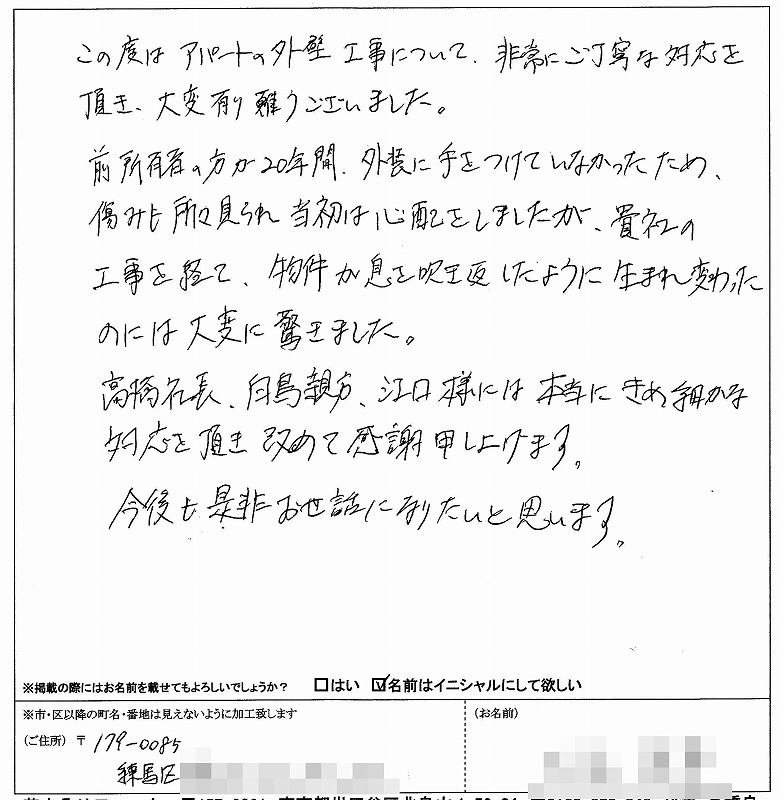 この度は アパートの外壁工事について、非常にご丁寧な対応を
頂き、大変有り難うございました。
前所有者の方が20年間、外装に手をつけていなかったため、
傷みも所々見られ当初は心配をしましたが、貴社の
工事を経て、物件が息を吹き返したように生まれ変わった
のには大変に驚きました。
高橋社長、白鳥親方、江口様には本当にきめ細かな
対応を頂き改めて感謝申し上げます。
今後も是非お世話になりたいと思います。
※掲載の際にはお名前を載せてもよろしいでしょうか？ □はい ☑名前はイニシャルにして欲しい
※市・区以降の町名・番地は見えないように加工致します
(お名前)
(ご住所) 〒 179-0085
練馬区